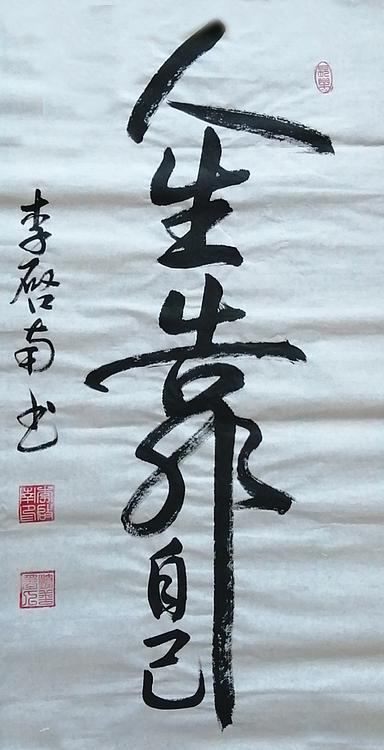 人生靠自己
李启南书